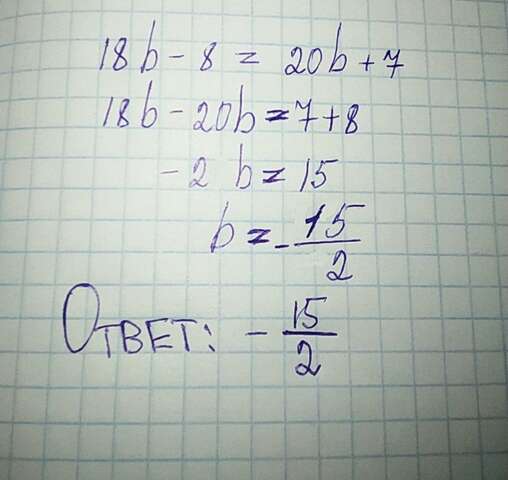 18b - 8 = 20b + 7
18b - 20b = 7 + 8
- 2 b = 15
b = - 15/2
Ответ: - 15/2